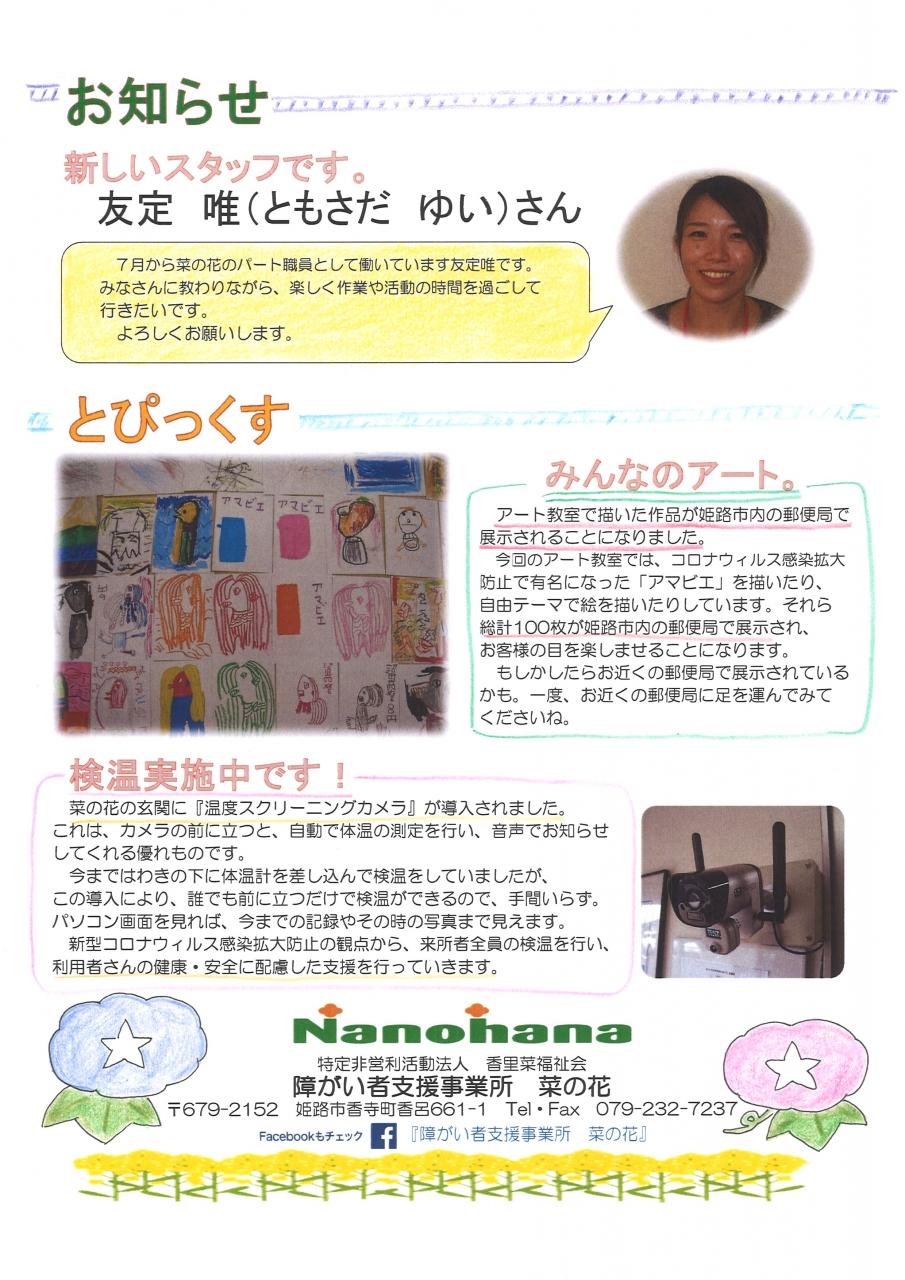 お知らせ
新しいスタッフです。
友定　唯（ともさだ　ゆい）さん
７月から菜の花のパート職員として働いています友定唯です。
みなさんに教わりながら、楽しく作業や活動の時間を過ごして
行きたいです。
よろしくお願いします。
とぴっくす
アマビエ
アマビエ
アマビエ
みんなのアート。
アート教室で描いた作品が姫路市内の郵便局で
展示されることになりました。
今回のアート教室では、コロナウィルス感染拡大
防止で有名になった「アマビエ」を描いたり、
自由テーマで絵を描いたりしています。それら
総計100枚が姫路市内の郵便局で展示され、
お客様の目を楽しませることになります。
もしかしたらお近くの郵便局で展示されている
かも。一度、お近くの郵便局に足を運んでみて
くださいね。
検温実施中です！
菜の花の玄関に『温度スクリーニングカメラ』が導入されました。
これは、カメラの前に立つと、自動で体温の測定を行い、音声でお知らせ
してくれる優れものです。
今まではわきの下に体温計を差し込んで検温をしていましたが、
この導入により、誰でも前に立つだけで検温ができるので、手間いらず。
パソコン画面を見れば、今までの記録やその時の写真まで見えます。
新型コロナウィルス感染拡大防止の観点から、来所者全員の検温を行い、
利用者さんの健康・安全に配慮した支援を行っていきます。
Nanohana
特定非営利活動法人　香里菜福祉会
障がい者支援事業所　菜の花
〒679-2152　姫路市香寺町香呂661-1　Tel・Fax　079-232-7237
Facebookもチェック　『障がい者支援事業所　菜の花』